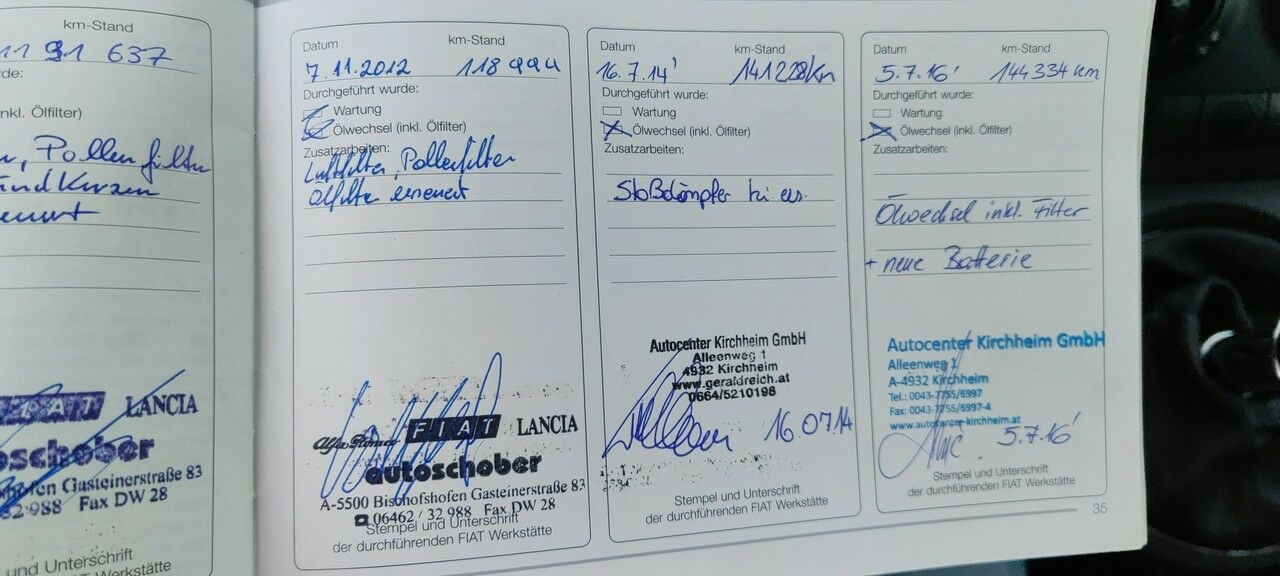 km-Stand
637
de:
nkl. Ölfilter)
Pollenfilter
und Kerzen
LANCIA
oschober
hofen Gasteinerstraße 83
32 988 Fax DW 28
und Unterschrift
FIAT Werkstätte
Datum km-Stand
7.11.2012 118 994
Durchgeführt wurde:
Wartung
Ölwechsel (inkl. Ölfilter)
Zusatzarbeiten:
Luftfilter, Pollenfilter
Ölfilter erneuert
Alfa Romeo FIAT LANCIA
autoschober
A-5500 Bischofshofen Gasteinerstraße 83
06462 / 32 988 Fax DW 28
Stempel und Unterschrift
der durchführenden FIAT Werkstätte
Datum km-Stand
16.7.14' 141228km
Durchgeführt wurde:
Wartung
Ölwechsel (inkl. Ölfilter)
Zusatzarbeiten:
Stoßdämpfer hi
Autocenter Kirchheim GmbH
Alleenweg 1
4932 Kirchheim
www.geraldreich.at
0664/5210198
16 07 14
Stempel und Unterschrift
der durchführenden FIAT Werkstätte
Datum km-Stand
5.7.16' 144334 km
Durchgeführt wurde:
Wartung
Ölwechsel (inkl. Ölfilter)
Zusatzarbeiten:
Ölwechsel inkl. Filter
+ neue Batterie
Autocenter Kirchheim GmbH
Alleenweg 1
A-4932 Kirchheim
Tel.: 0043-7755/6997
Fax: 0043-7755/6997-4
www.autocenter-kirchheim.at
5.7.16'
Stempel und Unterschrift
der durchführenden FIAT Werkstätte
35